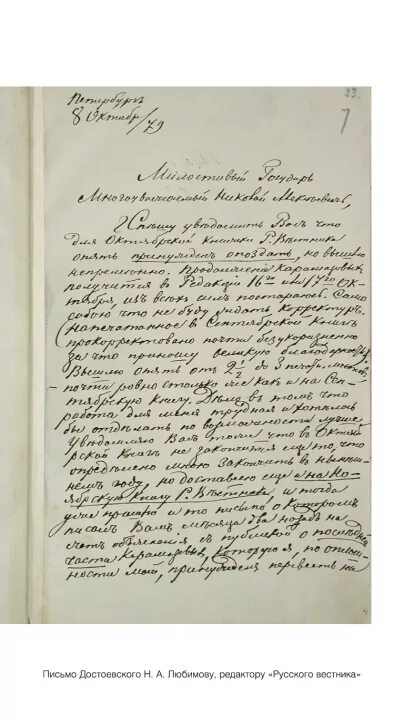 23.
7
Петербургъ
8 Октября/79
Милостивый Государь
Многоуважаемый Николай Алексѣевичъ,
Спѣшу увѣдомить Васъ что
для Октябрской Книжки Р. Вѣстника
опять принужденъ опоздать, но вышлю
непремѣнно. Продолженіе Карамазовыхъ
получится в Редакціи 16го или 17го Ок-
тября, изъ всѣхъ силъ постараюсь. Само
собою что не буду ждать корректуръ.
Напечатанное в Сентябрской Книгѣ
прокорректовано почти безукоризненно
за что приношу великую благодарность.
Вышлю опять отъ 2½ до 3 печ. листовъ,
почти ровно столько же какъ и на Сен-
тябрскую Книгу. Дѣло в томъ что
работа для меня трудная и хотѣлось
бы отдѣлать по возможности лучше
Увѣдомляю Васъ тоже что в Октяб-
рской Книгѣ не закончится еще то, что
опредѣлено мною закончить в нынѣш-
немъ году, но доставлю еще и на Но-
ябрскую Книгу Р. Вѣстника, и тогда
уже пришлю и то письмо о которомъ
писалъ Вамъ мѣсяца два назадъ на
счетъ объясненія съ публикой о послѣдней
части Карамазовыхъ, которую я, по оплош-
ности моей, принужденъ перенесть на
Письмо Достоевского Н. А. Любимову, редактору «Русского вестника»